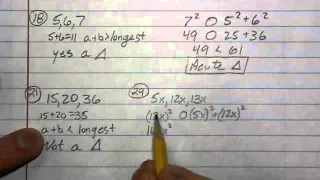 18) 5,6,7
5+6=11 a+b>longest
yes a △
7² O 5²+6²
49 O 25+36
49 < 61
Acute △
21) 15,20,36
15+20=35
a+b < longest
Not a △
29) 5x,12x,13x
(13x)² O (5x)²+(12x)²